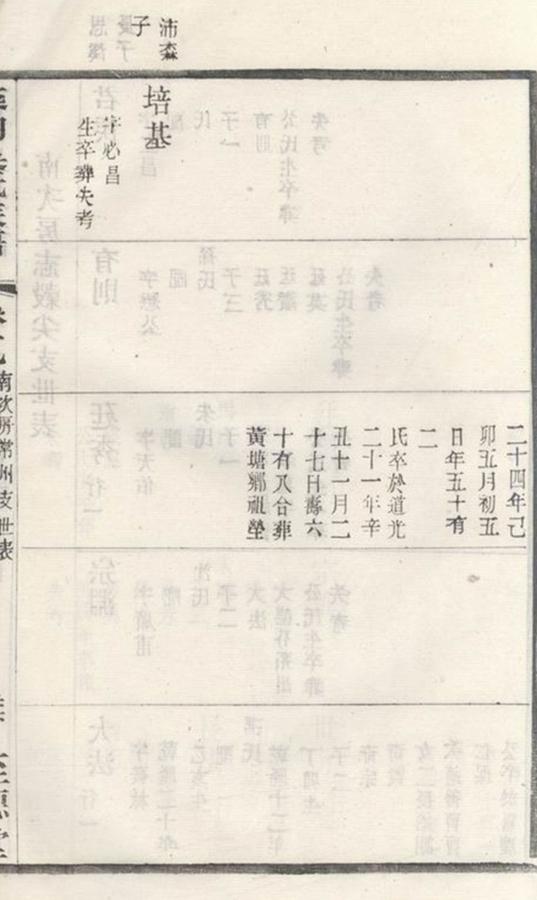 沛森
子
培基
字必昌
生卒葬失考
二十四年己
卯五月初五
日年五十有
二
氏卒於道光
二十一年辛
丑十一月二
十七日壽六
十有八合葬
黃塘鄉祖塋
南次房常州支世表